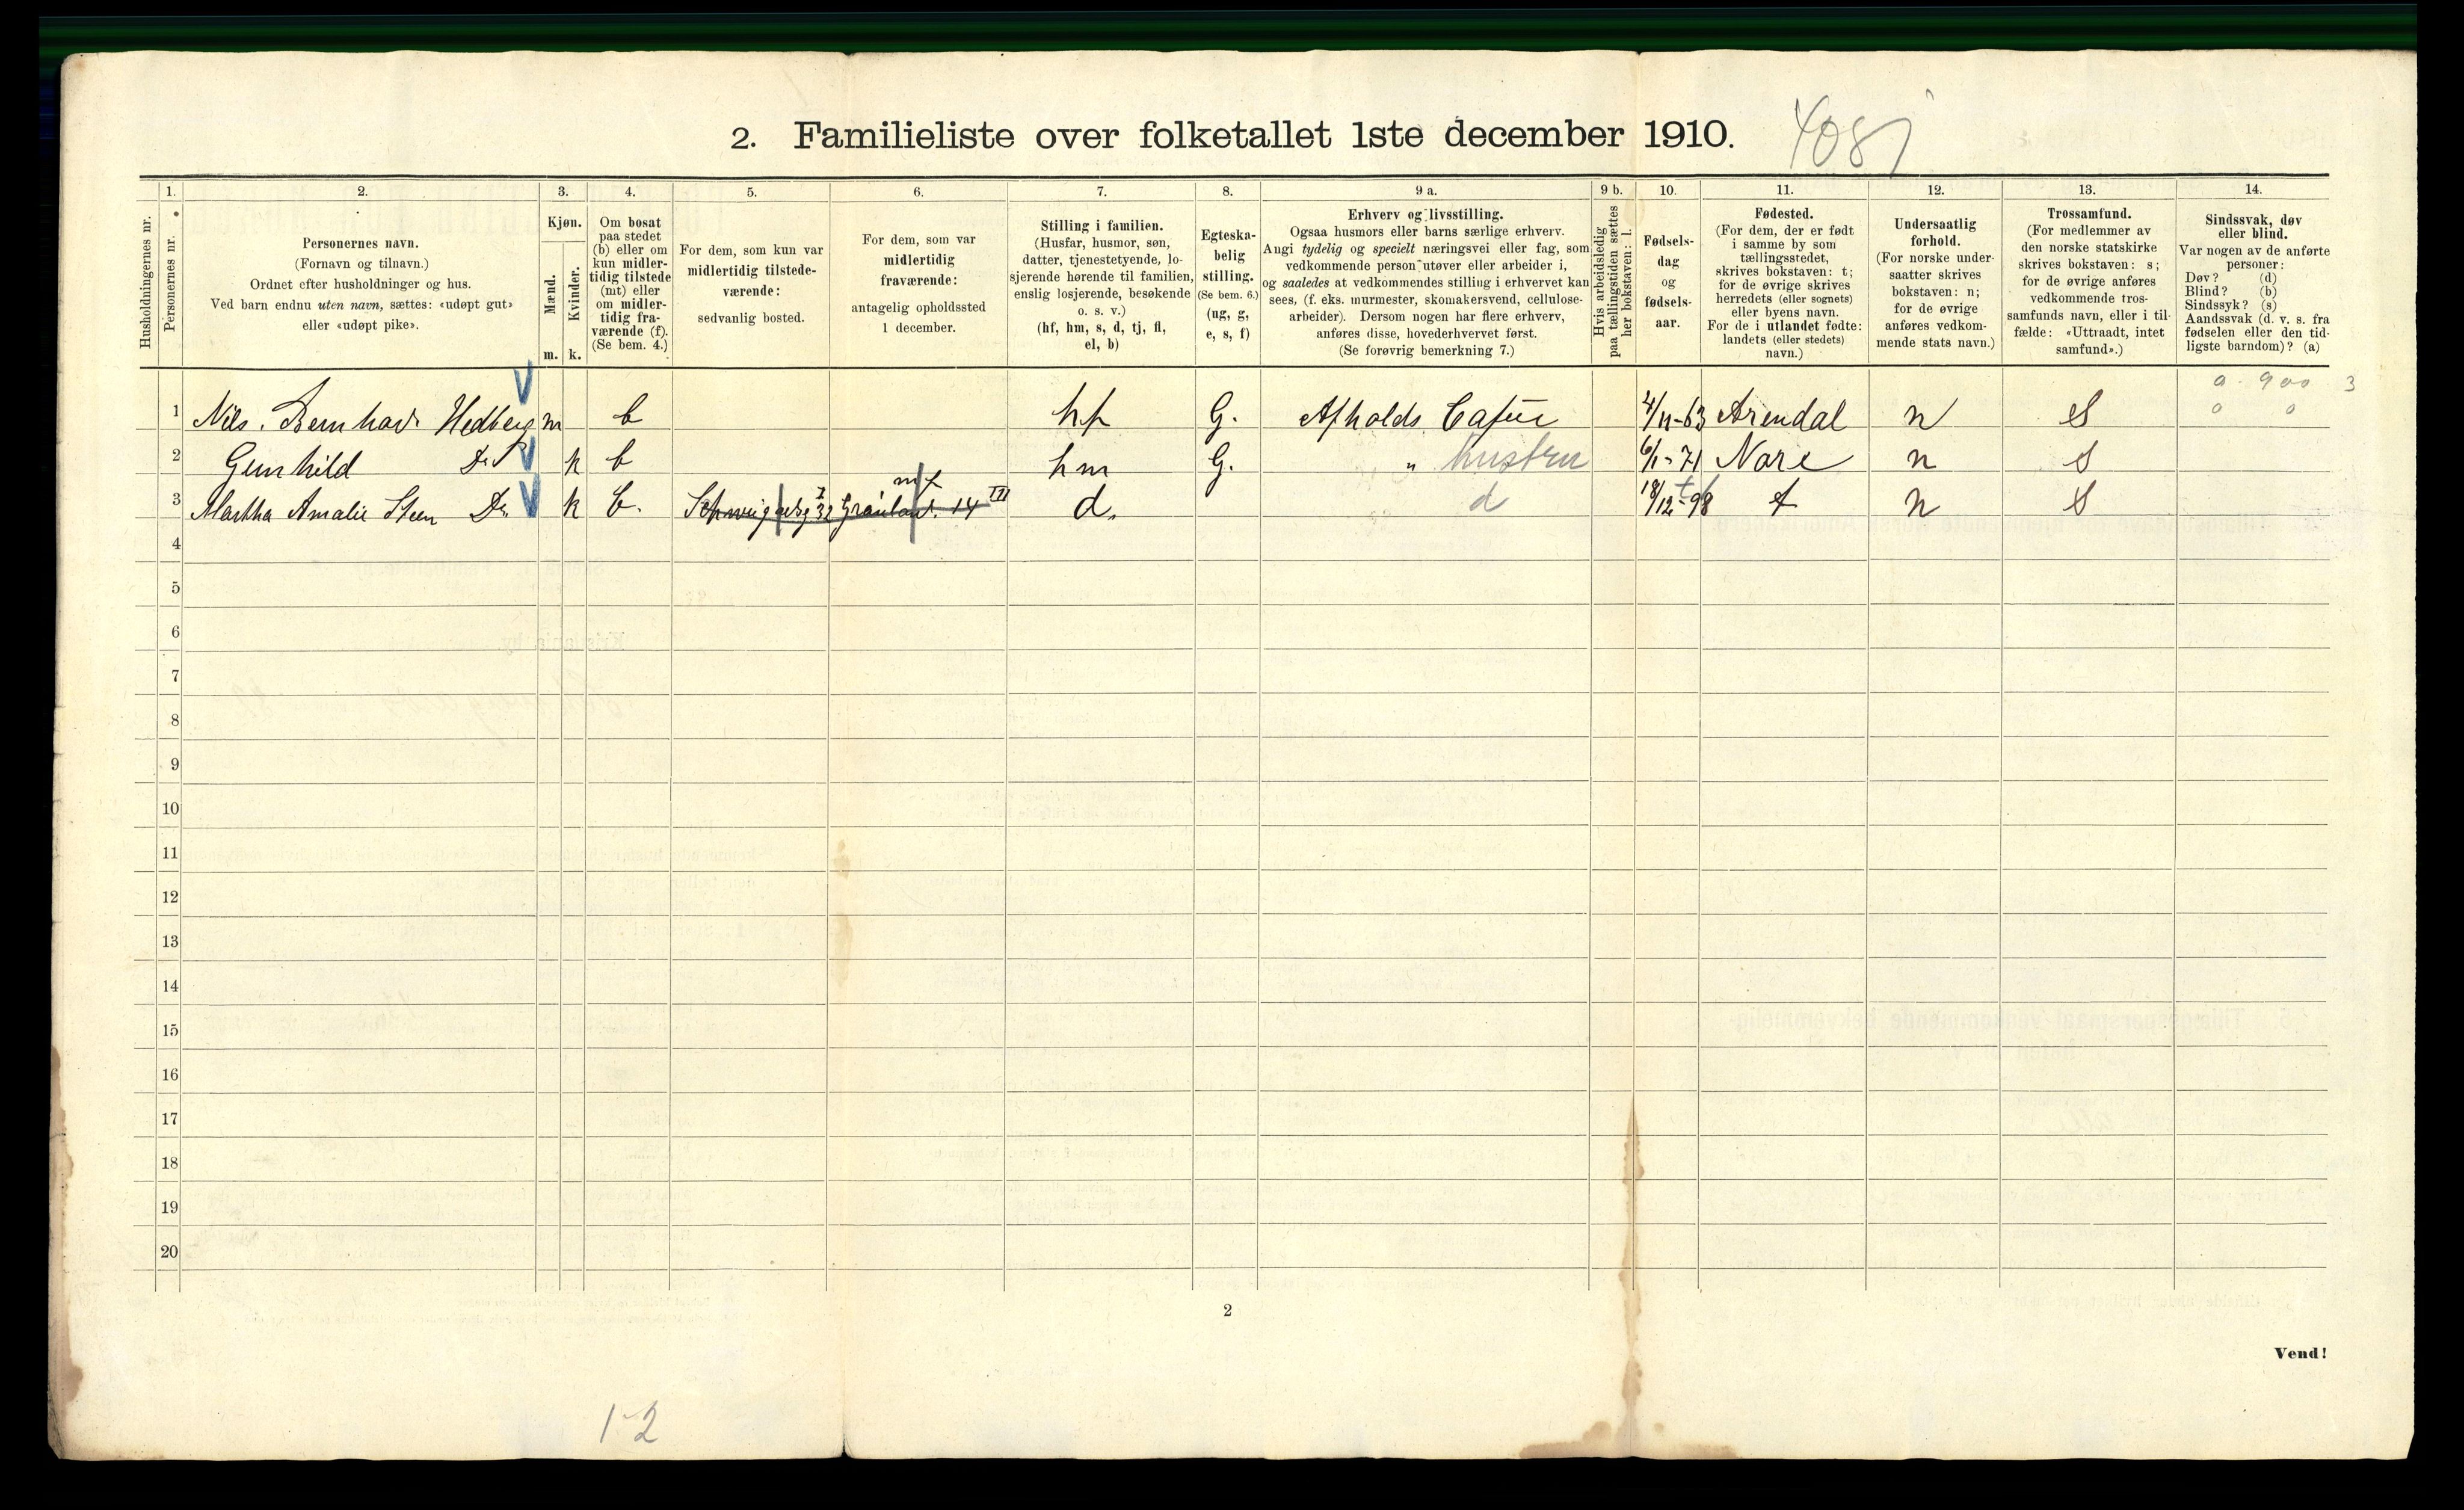 2. Familieliste over folketallet 1ste december 1910.
408
Husholdningernes nr.
1.
Personernes nr.
2.
Personernes navn.
(Fornavn og tilnavn.)
Ordnet efter husholdninger og hus.
Ved barn endnu uten navn, sættes: «udøpt gut»
eller «udøpt pike».
3.
Kjøn.
Mænd.
Kvinder.
m.
k.
4.
Om bosat
paa stedet
(b) eller om
kun midler-
tidig tilstede
(mt) eller
om midler-
tidig fra-
værende (f).
(Se bem. 4.)
5.
For dem, som kun var
midlertidig tilstede-
værende:
sedvanlig bosted.
6.
For dem, som var
midlertidig
fraværende:
antagelig opholdssted
1 december.
7.
Stilling i familien.
(Husfar, husmor, søn,
datter, tjenestetyende, lo-
sjerende hørende til familien,
enslig losjerende, besøkende
o. s. v.)
(hf, hm, s, d, tj, fl,
el, b)
8.
Egteska-
belig
stilling.
(Se bem. 6.)
(ug, g,
e, s, f)
9 a.
Erhverv og livsstilling.
Ogsaa husmors eller barns særlige erhverv.
Angi tydelig og specielt næringsvei eller fag, som
vedkommende person utøver eller arbeider i,
og saaledes at vedkommendes stilling i erhvervet kan
sees, (f. eks. murmester, skomakersvend, cellulose-
arbeider). Dersom nogen har flere erhverv,
anføres disse, hovederhvervet først.
(Se forøvrig bemerkning 7.)
9 b.
Hvis arbeidsledig
paa tællingstiden sættes
her bokstaven: l.
10.
Fødsels-
dag
og
fødsels-
aar.
11.
Fødested.
(For dem, der er født
i samme by som
tællingsstedet,
skrives bokstaven: t;
for de øvrige skrives
herredets (eller sognets)
eller byens navn.
For de i utlandet fødte:
landets (eller stedets)
navn.)
12.
Undersaatlig
forhold.
(For norske under-
saatter skrives
bokstaven: n;
for de øvrige
anføres vedkom-
mende stats navn.)
13.
Trossamfund.
(For medlemmer av
den norske statskirke
skrives bokstaven: s;
for de øvrige anføres
vedkommende tros-
samfunds navn, eller i til-
fælde: «Uttraadt, intet
samfund».)
14.
Sindssvak, døv
eller blind.
Var nogen av de anførte
personer:
Døv? (d)
Blind? (b)
Sindssyk? (s)
Aandssvak (d. v. s. fra
fødselen eller den tid-
ligste barndom)? (a)
0 - 900 3
0 0
1 Nils. Bernhard Hedberg m b hf G. Afholds Cafue 4/11-63 Arendal n S
2 Gunhild Do k b hm G. " hustru 6/1-71 Nore n S
mt
3 Martha Amalie Steen Do k b. Schweigaardsg 32 I Grønland. 14 III d. d 18/12-98 t n S
4
5
6
7
8
9
10
11
12
13
14
15
16
17
18
19
20
2
Vend!
1-2